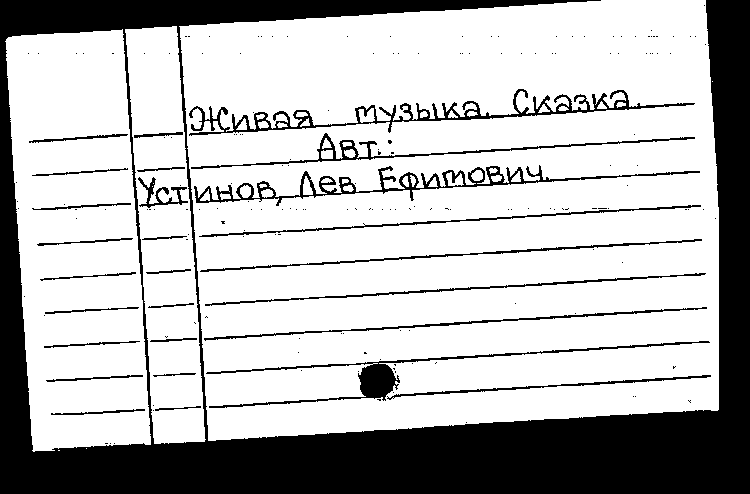 Живая музыка. Сказка.
Авт.:
Устинов, Лев Ефимович.